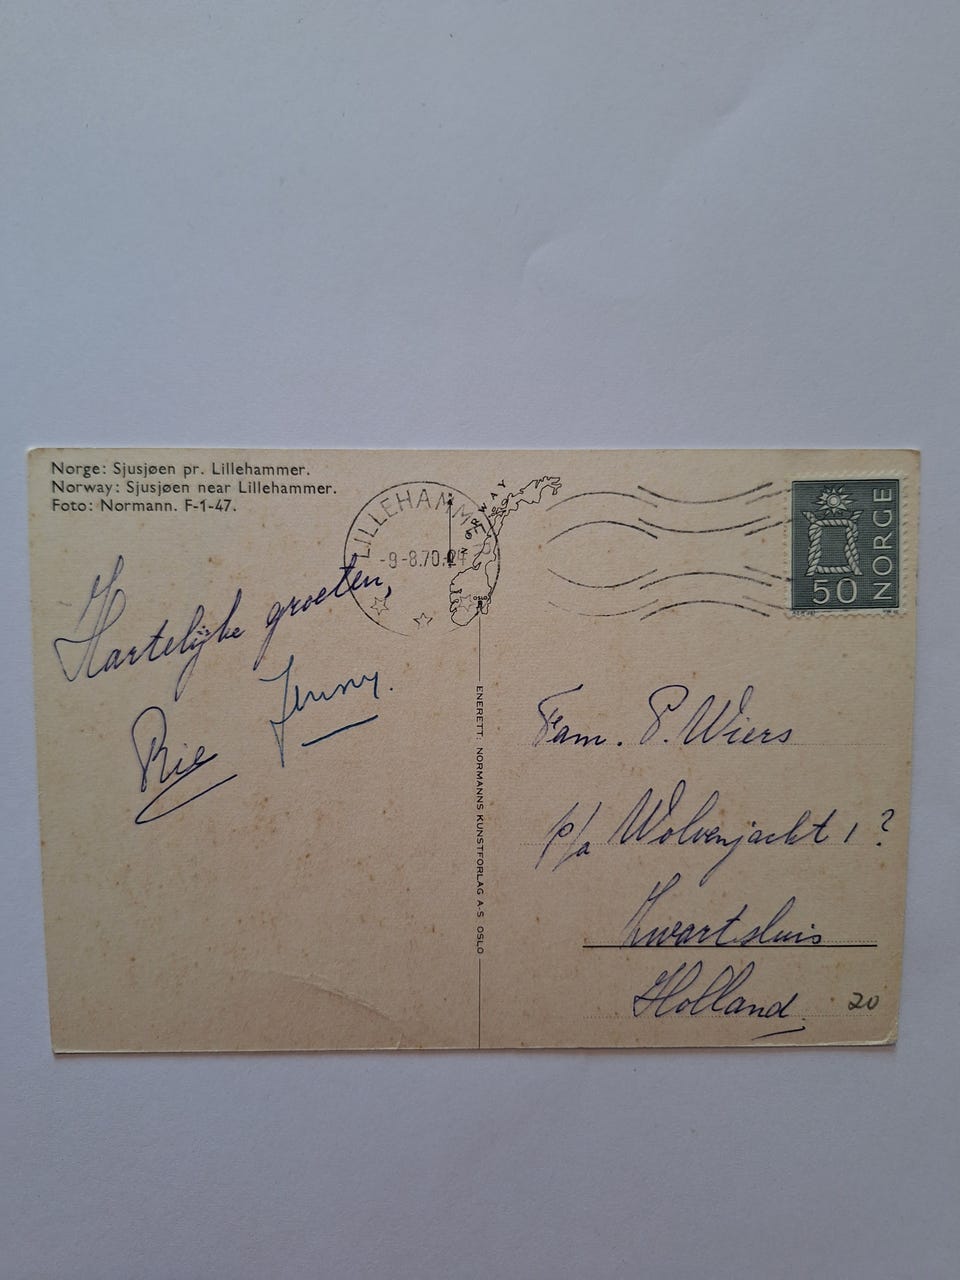 Norge: Sjusjøen pr. Lillehammer.
Norway: Sjusjøen near Lillehammer.
Foto: Normann. F-1-47.
LILLEHAMMER
-9-8.70.
NORWAY
OSLO
NORGE
50
Hartelijke groeten,
Rie Jenny.
ENERETT: NORMANNS KUNSTFORLAG A-S OSLO
Fam. P. Wiers
p/a Wolvenjacht 1 ?
Zwartsluis
Holland.
20